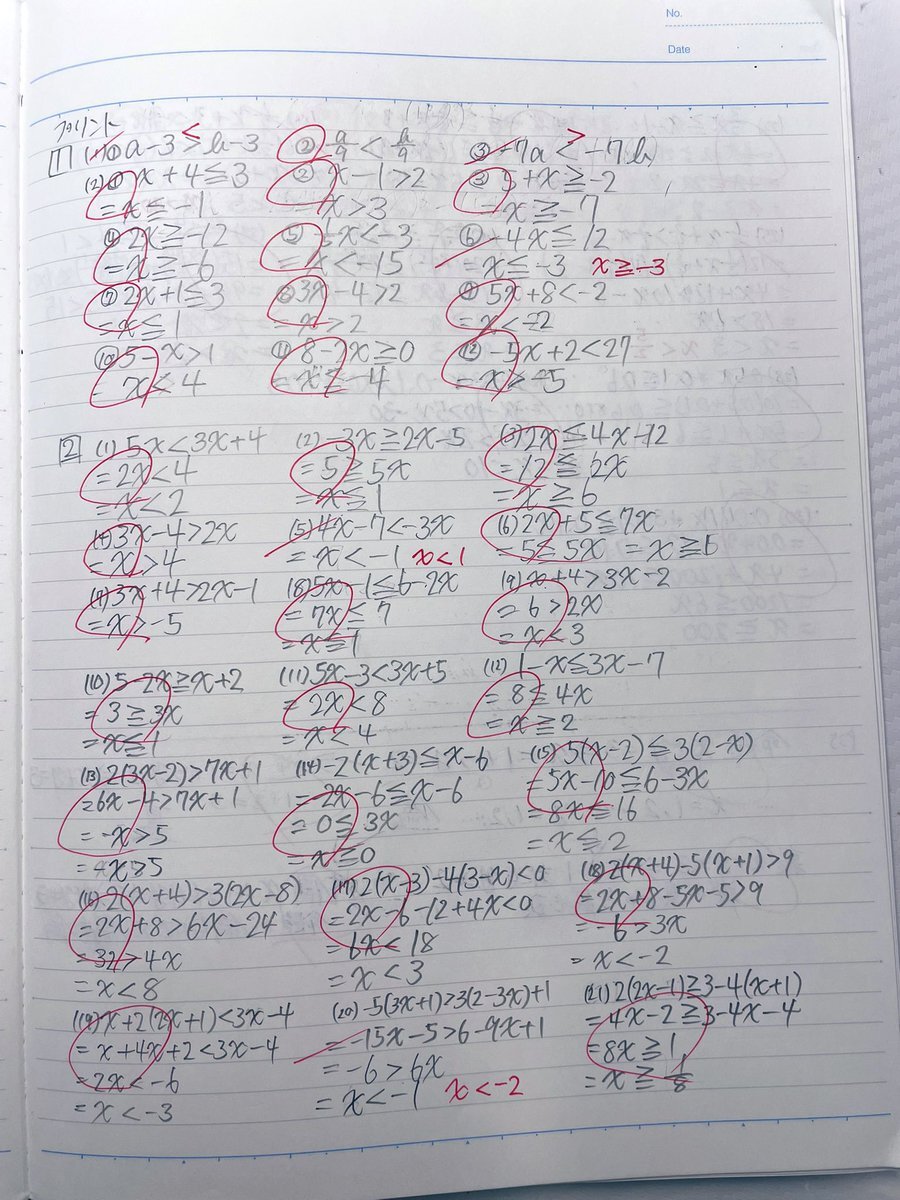 No.
Date
プリント
1 (1)① a-3≧b-3 < ② a/9<b/9 ③ -7a<-7b >
(2)① x+4≦3 ② x-1>2 ③ 5+x≧-2
=x≦-1 =x>3 =x≧-7
④ 2x≧-12 ⑤ 1/5x<-3 ⑥ -4x≦12
=x≧-6 =x<-15 =x≦-3 x≧-3
⑦ 2x+1≦3 ⑧ 3x-4>2 ⑨ 5x+8<-2
=x≦1 =x>2 =x<-2
⑩ 5-x>1 ⑪ 8-2x≧0 ⑫ -5x+2<27
x<4 =x≦4 =x>-5
2 (1) 5x<3x+4 (2) -3x≧2x-5 (3) 2x≦4x-12
=2x<4 =5≧5x =12≦2x
=x<2 =x≦1 =x≧6
(4) 3x-4>2x (5) 4x-7<-3x (6) 2x+5≦7x
=x>4 =x<-1 x<1 =5≦5x =x≧6
3x+4>2x-1 (8) 5x-1≦6-2x (9) x+4>3x-2
=x>-5 =7x≦7 =6>2x
=x≦1 =x<3
(10) 5-2x≧x+2 (11) 5x-3<3x+5 (12) 1-x≦3x-7
=3≧3x =2x<8 =8≦4x
=x≦1 =x<4 =x≧2
(13) 2(3x-2)>7x+1 (14) -2(x+3)≦x-6 (15) 5(x-2)≦3(2-x)
=6x-4>7x+1 =-2x-6≦x-6 =5x-10≦6-3x
=-x>5 =0≦3x =8x≦16
x 5 =x≧0 =x≦2
(16) 2(x+4)>3(2x-8) (17) 2(x-3)-4(3-x)<0 (18) 2(x+4)-5(x+1)>9
=2x+8>6x-24 =2x-6-12+4x<0 =2x+8-5x-5>9
=32>4x =6x<18 =-6>3x
=x<8 =x<3 =x<-2
(19) x+2(2x+1)<3x-4 (20) -5(3x+1)>3(2-3x)+1 (21) 2(2x-1)≧3-4(x+1)
=x+4x+2<3x-4 =-15x-5>6-9x+1 =4x-2≧3-4x-4
=2x<-6 =-6>6x =8x≧1
=x<-3 =x<-1 x<-2 =x≧1/8